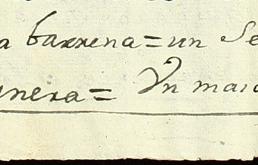 a barrena = un Se
nera = Vn mai